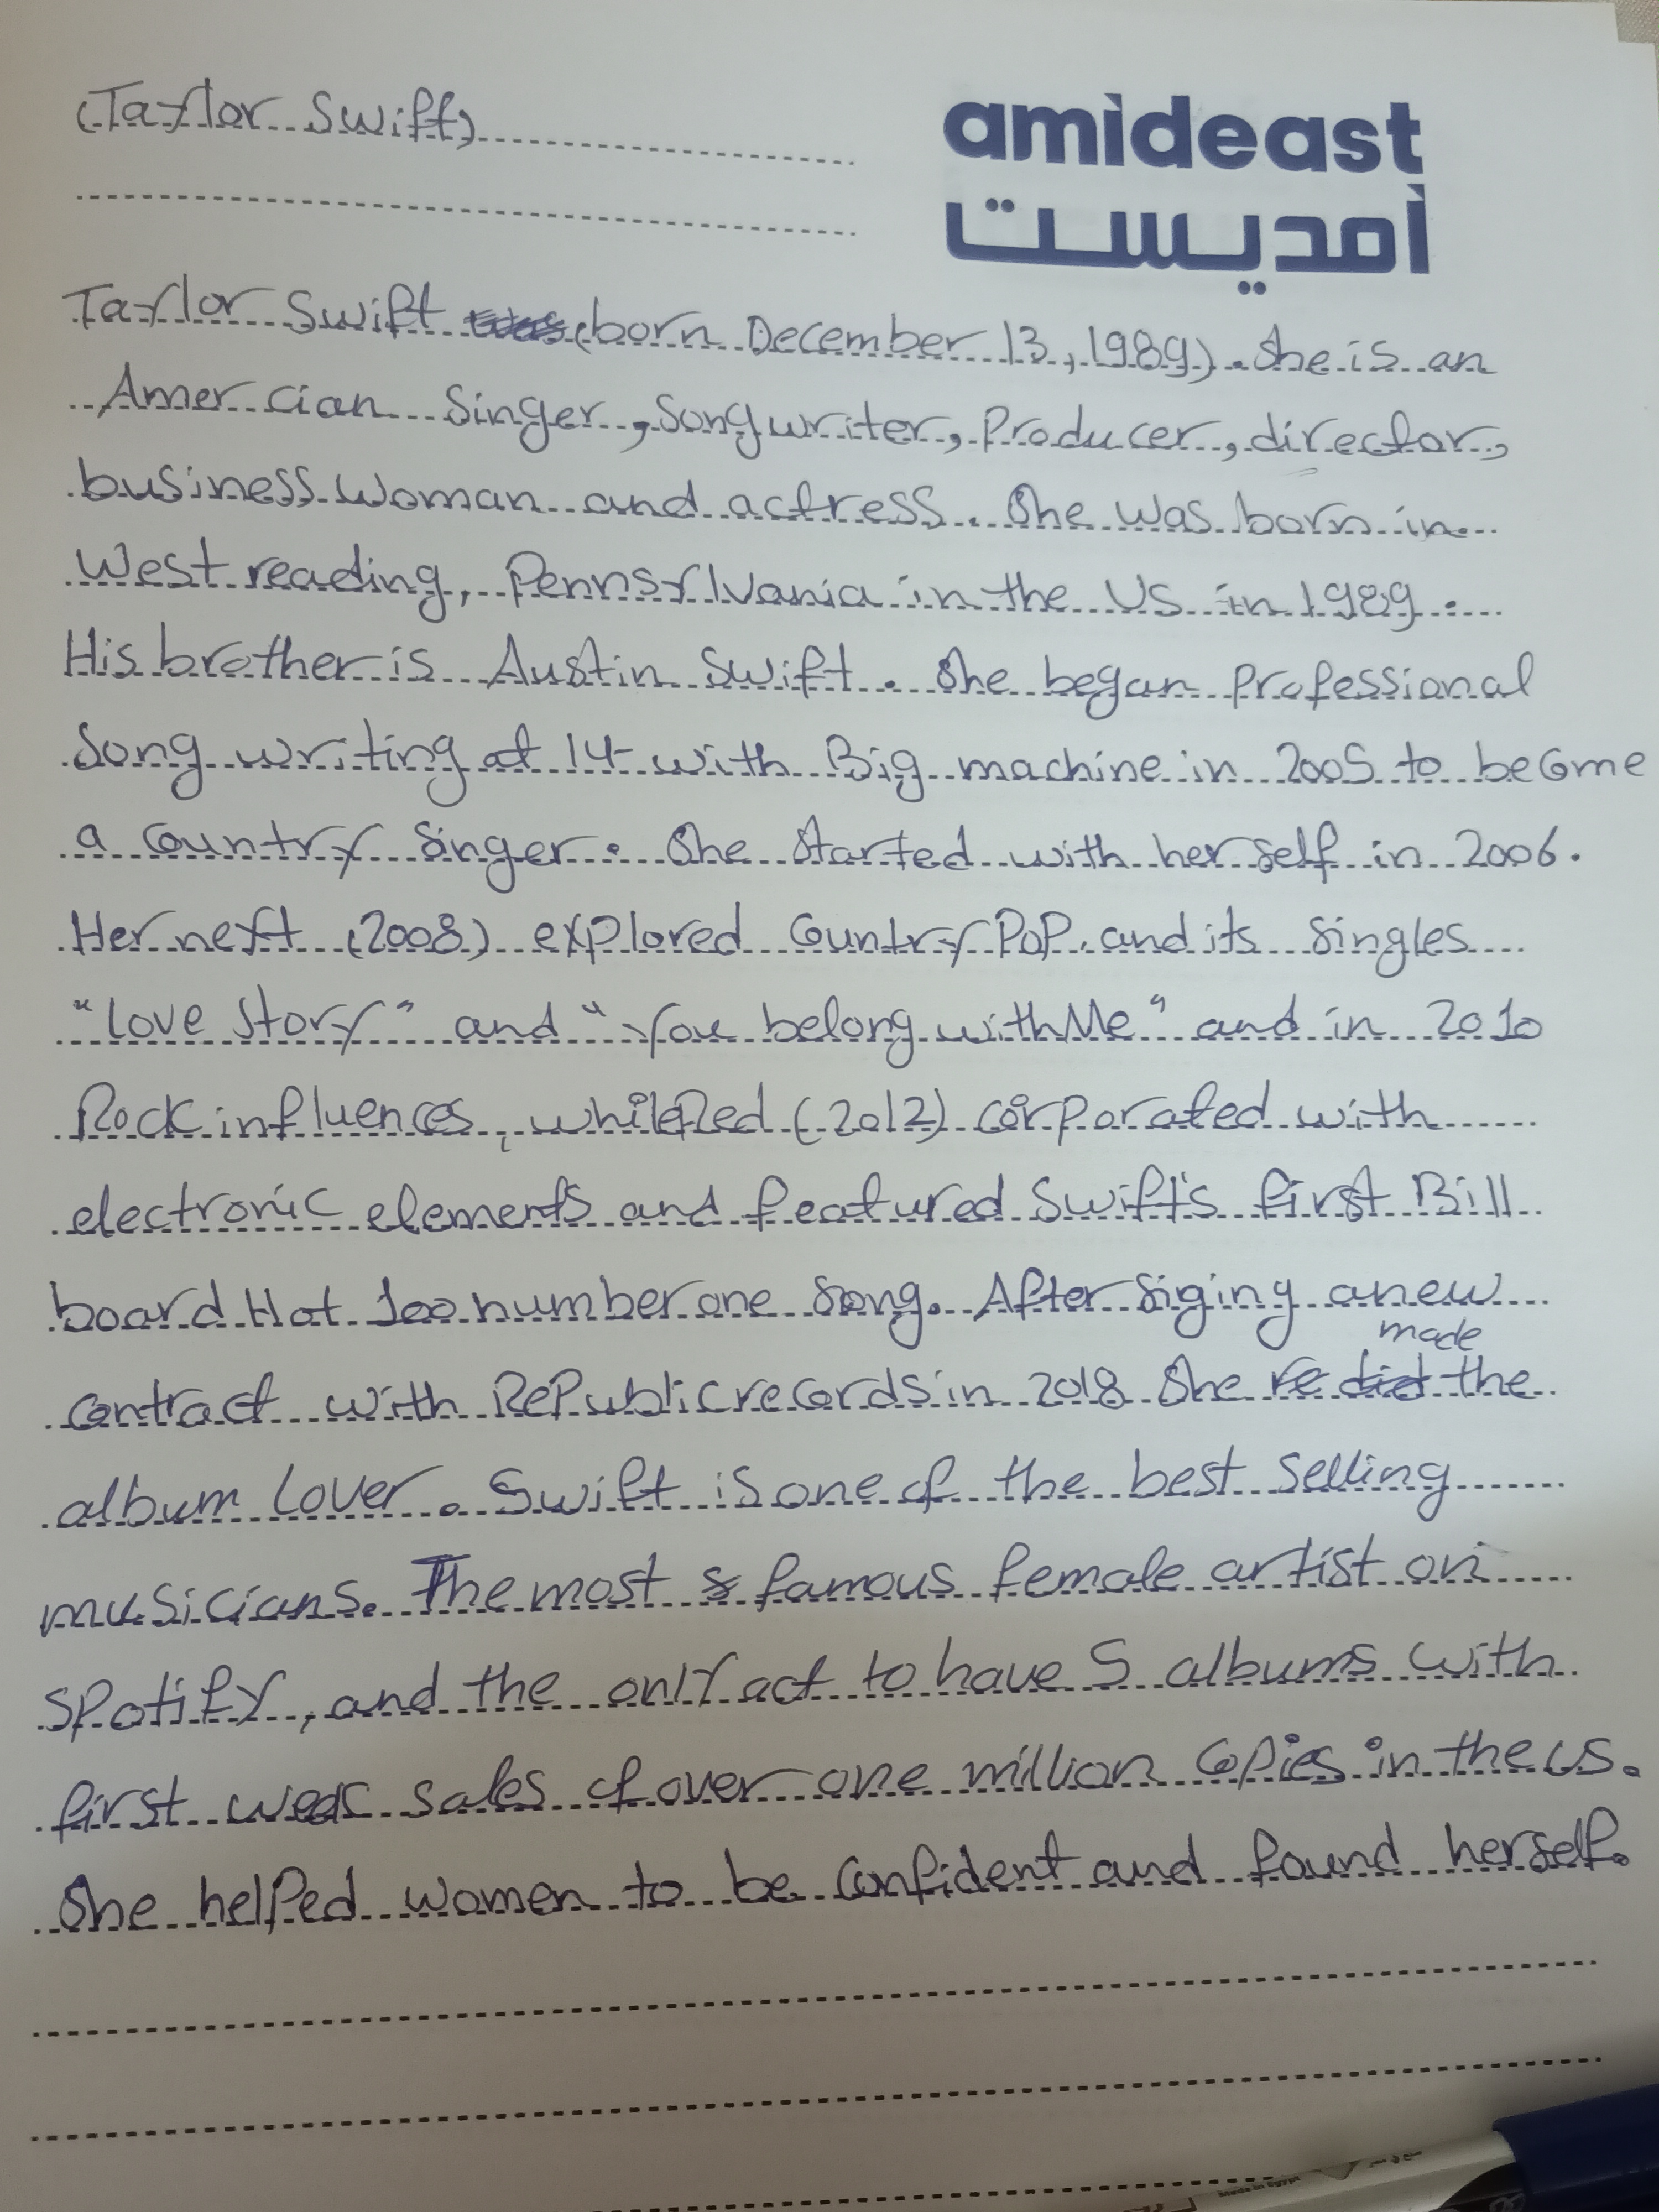 (Taylor Swift)
amideast
أمديست
Taylor Swift (born December 13, 1989). She is an
Amercian Singer, Songwriter, Producer, director,
business woman and actress. She was born in
West reading, Pennsylvania in the US in 1989.
His brother is Austin Swift. She began professional
Song writing at 14 with Big machine in 2005 to become
a country singer. She started with herself in 2006.
Her next (2008) explored Country Pop and its singles
"love story" and "you belong with Me" and in 2010
Rock influences, while Red (2012) corporated with
electronic elements and featured Swift's first Bill
board Hot 100 number one song. After siging a new
made
contract with Republic records in 2018 She re did the
album Lover. Swift is one of the best selling
musicians. The most famous female artist on
spotify, and the only act to have 5 albums with
first week sales of over one million copies in the US.
She helped women to be confident and found herself.
Made in Egypt